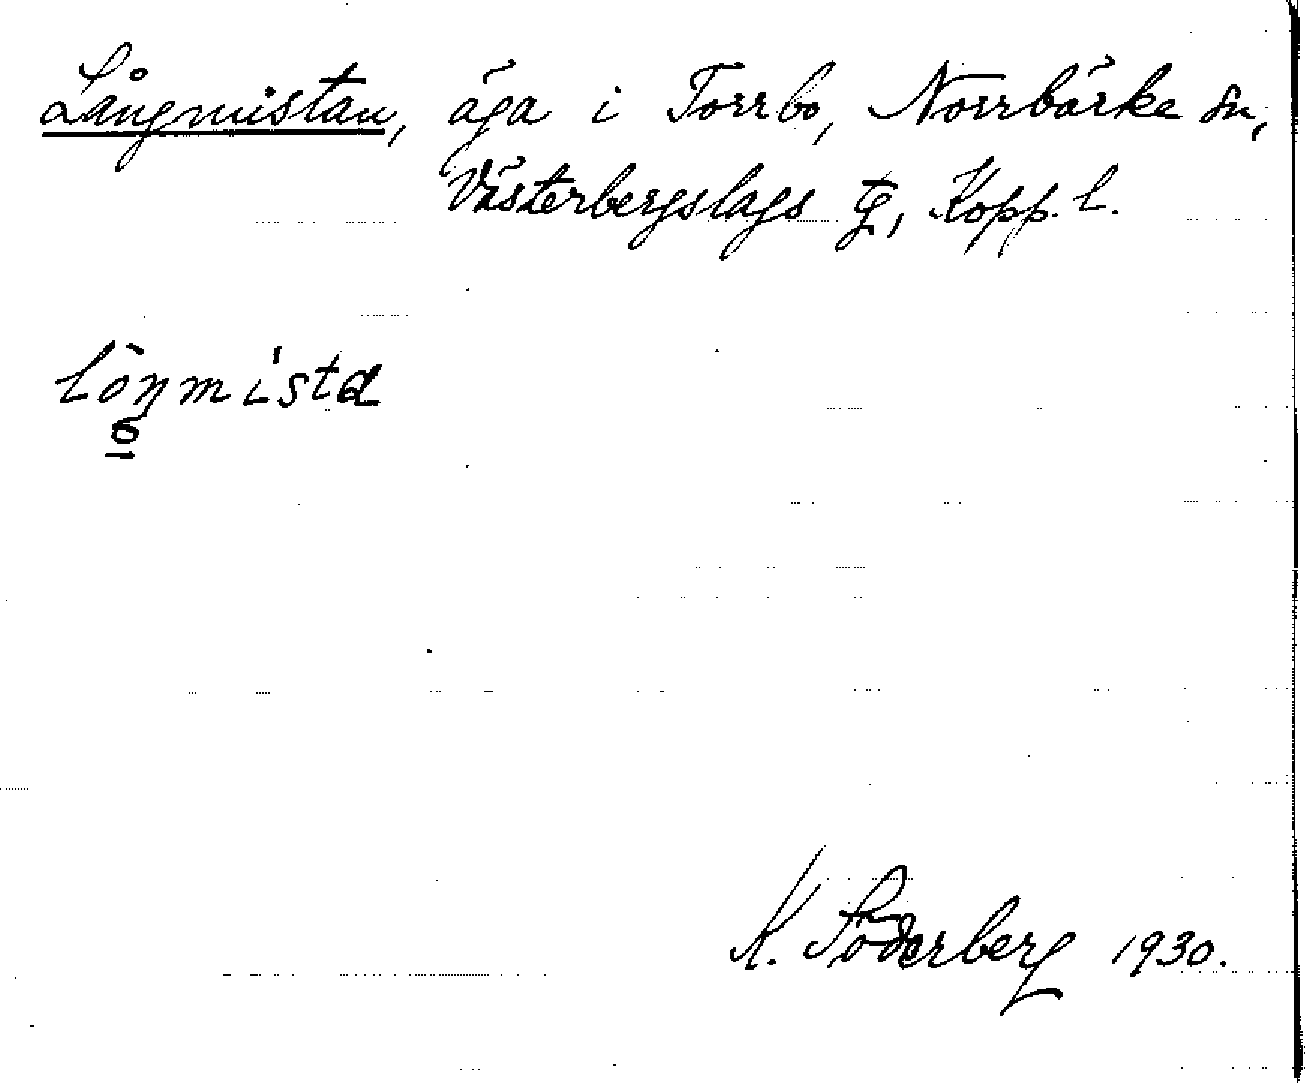 Långmistan, äga i Torrbo, Norrbärke sn,
Västerbergslags tg, Kopp. l.
lòŋmísta
o
K. Söderberg 1930.